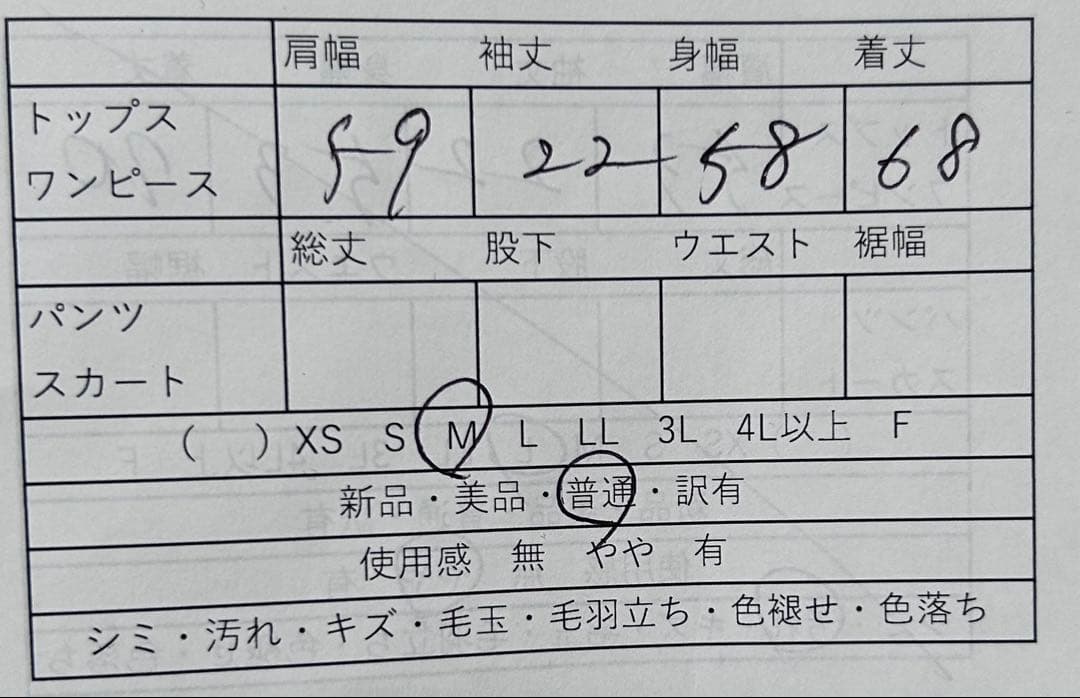 肩幅 袖丈 身幅 着丈
トップス
ワンピース 59 22 58 68
総丈 股下 ウエスト 裾幅
パンツ
スカート
( ) XS S M L LL 3L 4L以上 F
新品・美品・普通・訳有
使用感 無 やや 有
シミ・汚れ・キズ・毛玉・毛羽立ち・色褪せ・色落ち